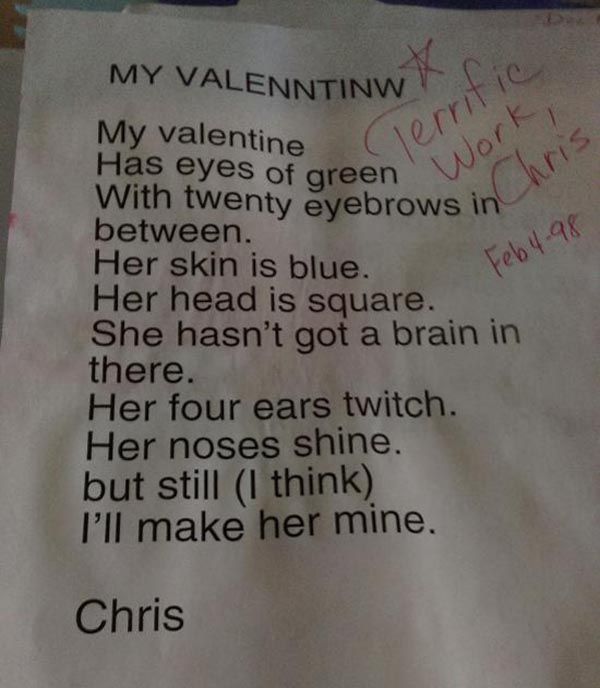 MY VALENNTINW
Terrific
Work!
Chris
Feb 4-98
My valentine
Has eyes of green
With twenty eyebrows in
between.
Her skin is blue.
Her head is square.
She hasn't got a brain in
there.
Her four ears twitch.
Her noses shine.
but still (I think)
I'll make her mine.
Chris